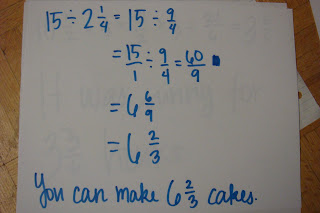 15 ÷ 2 1/4 = 15 ÷ 9/4
= 15/1 ÷ 9/4 = 60/9
= 6 6/9
= 6 2/3
You can make 6 2/3 cakes.